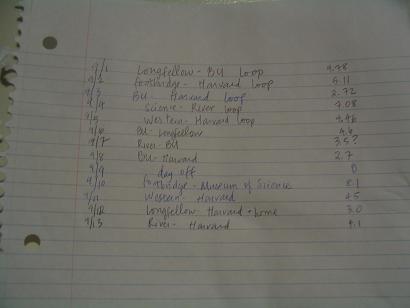 9/1 Longfellow - BU Loop 4.48
9/2 footbridge - Harvard Loop 5.11
9/3 BU - Harvard Loop 2.72
9/4 Science - River Loop 7.08
9/5 Western - Harvard Loop 4.46
9/6 BU - Longfellow 4.6
9/7 River - BU 3.5?
9/8 BU - Harvard 2.7
9/9 day off 0
9/10 footbridge - Museum of Science 8.1
9/11 Western - Harvard 4.5
9/12 Longfellow - Harvard + home 3.0
9/13 River - Harvard 4.1